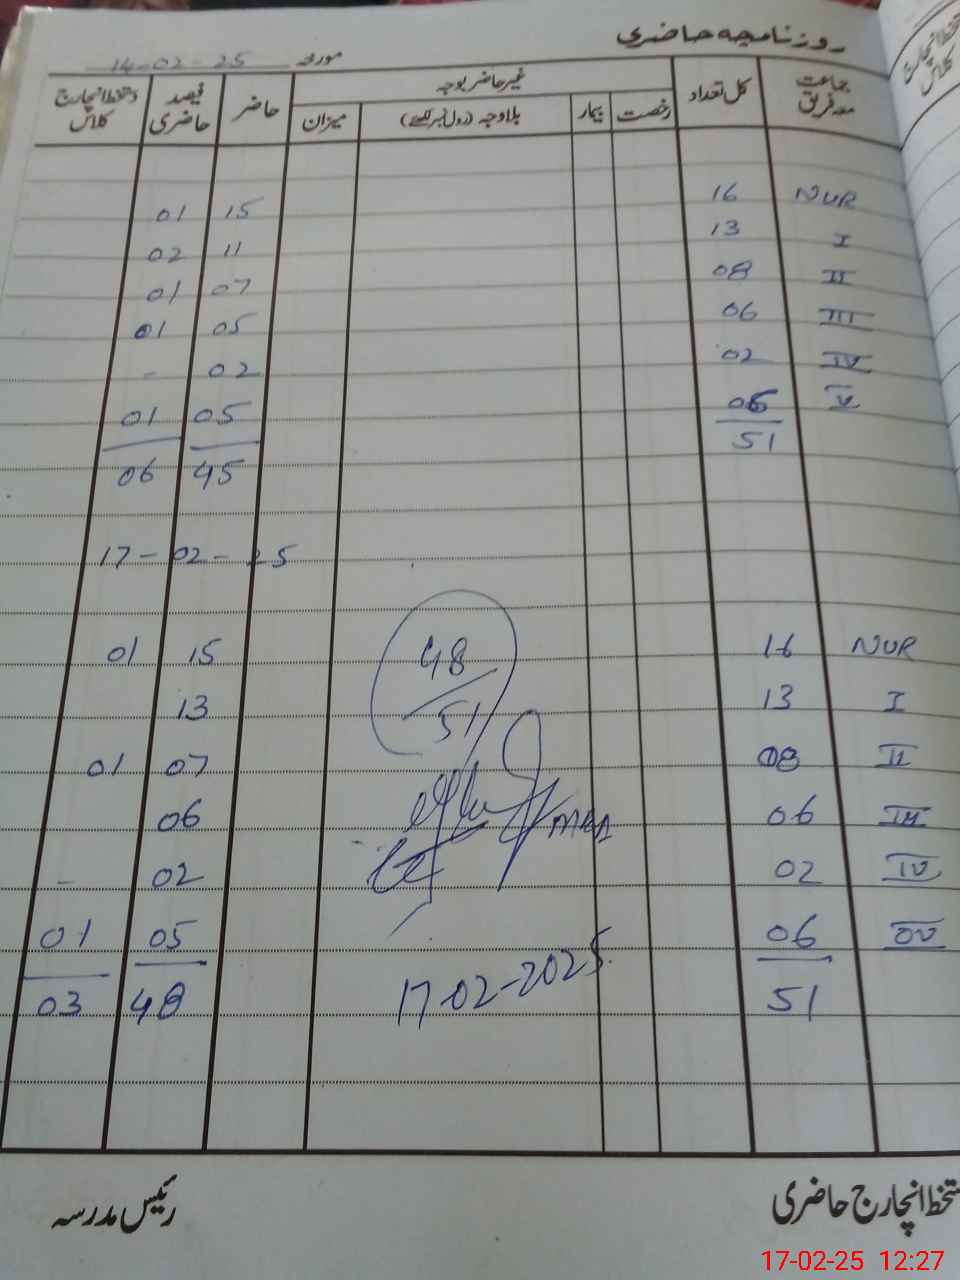 روزنامچہ حاضری
مورخہ 14-02-25
جماعت معہ فریق کل تعداد غیر حاضر بوجہ حاضر فیصد حاضری دستخط انچارج کلاس
رخصت بیمار بلاوجہ (رول نمبر لکھئے) میزان
NUR 16 15 01
I 13 11 02
II 08 07 01
III 06 05 01
IV 02 02 -
V 06 05 01
51 45 06
17-02-25
NUR 16 15 01
I 13 13
II 08 07 01
III 06 06
IV 02 02 -
06 05 01
51 48 03
48/51
17-02-2025
دستخط انچارج حاضری رئیس مدرسہ
17-02-25 12:27